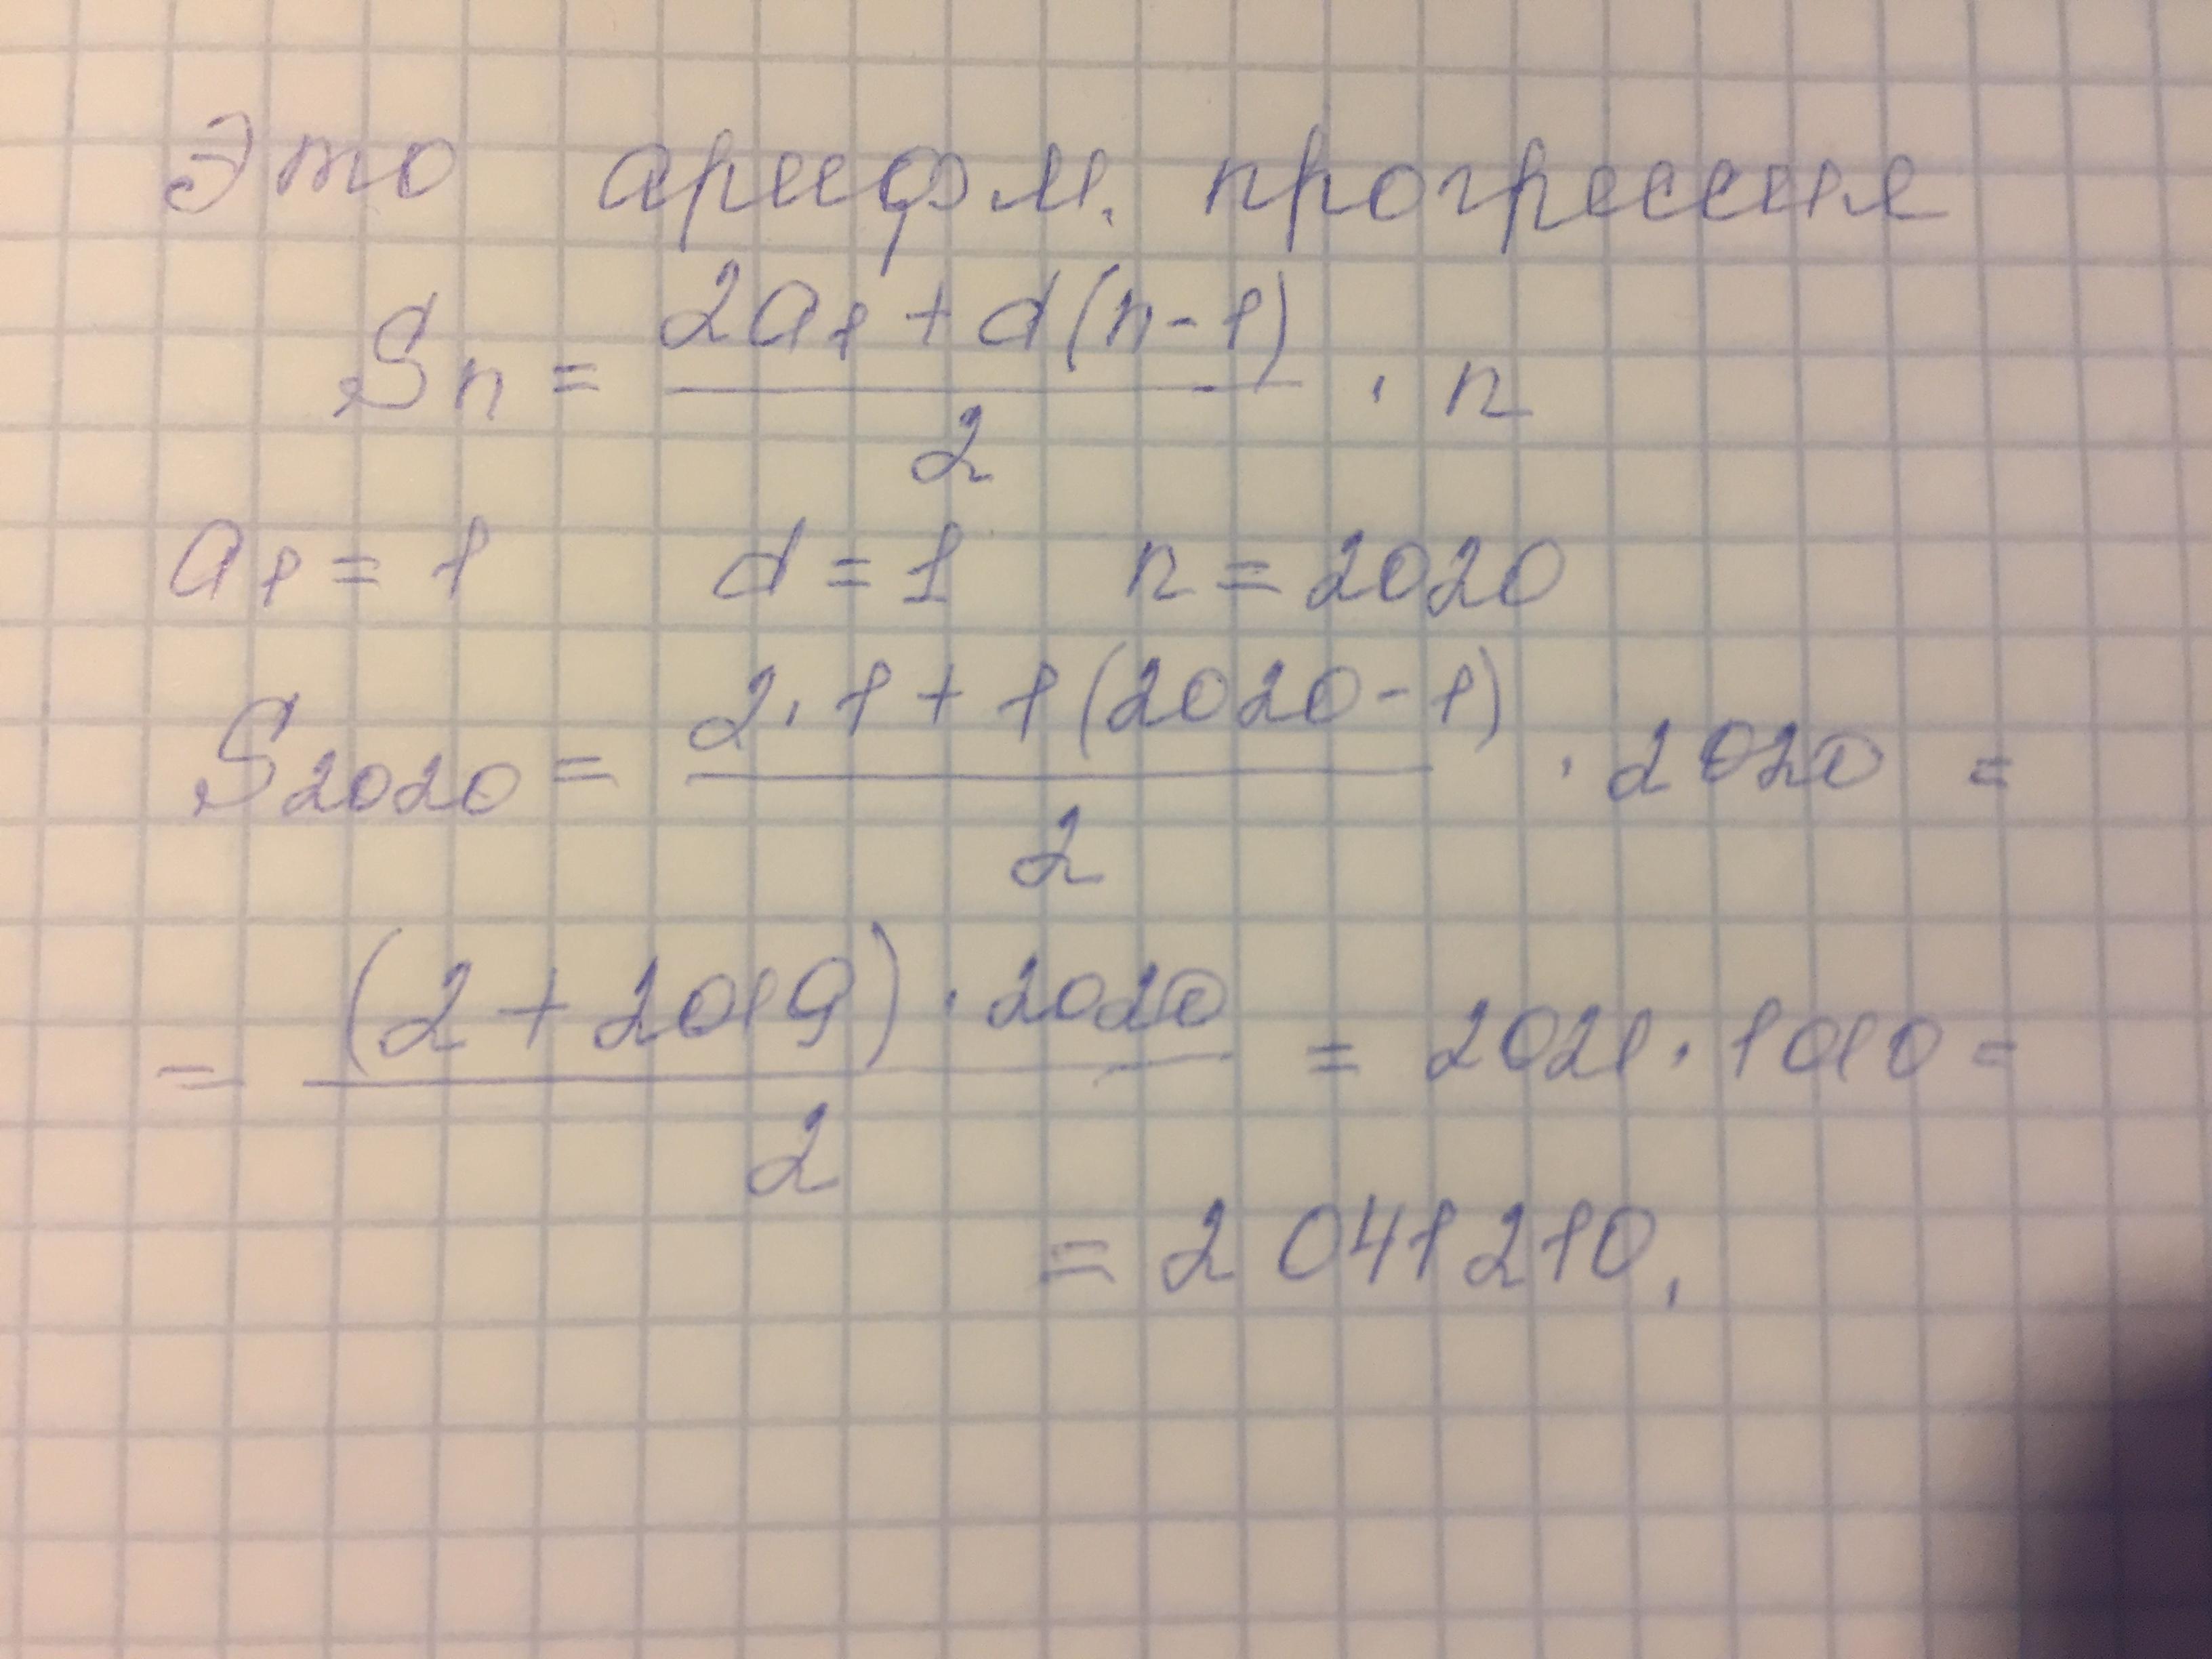 Это арифм. прогрессия
Sn = (2a1 + d(n-1))/2 · n
a1 = 1 d = 1 n = 2020
S2020 = (2·1 + 1(2020-1))/2 · 2020 =
= ((2+2019)·2020)/2 = 2021·1010 =
= 2 041 210.